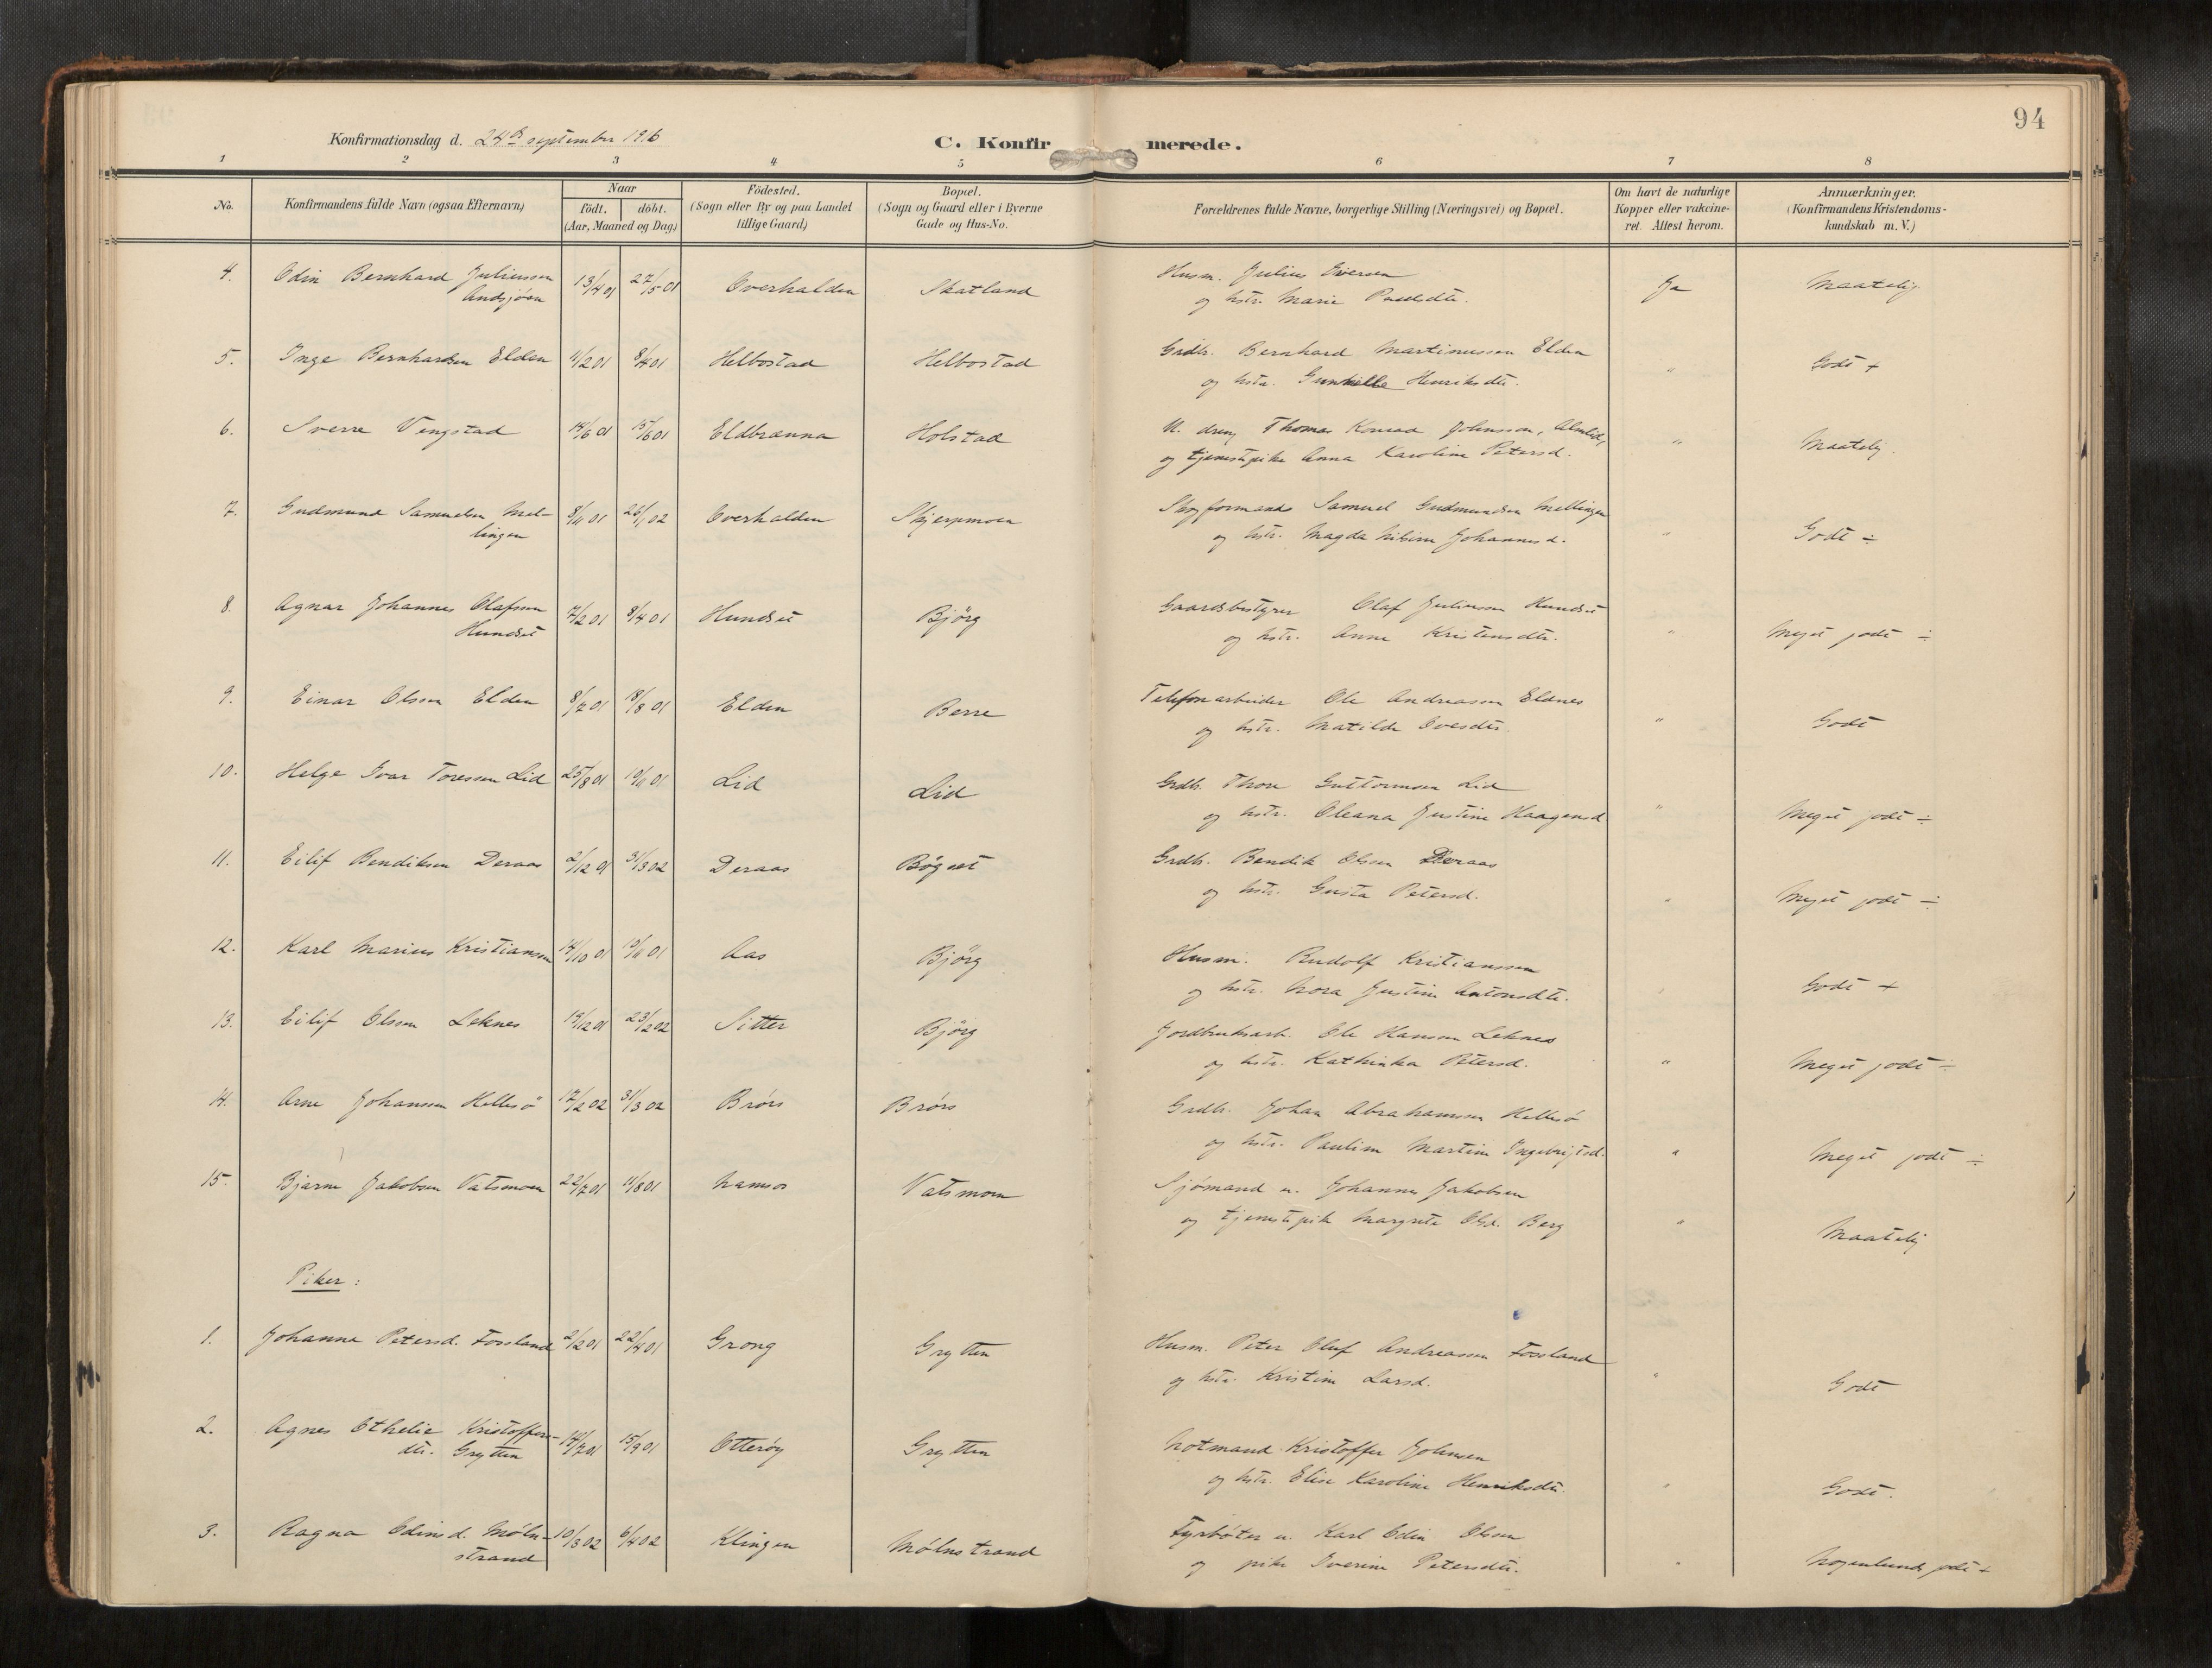 94
Konfirmationsdag d. 24de september 1916
C. Konfirmerede.
1 2 3 4 5 6 7 8
No.
Konfirmandens fulde Navn (ogsaa Efternavn)
Naar
födt. döbt.
(Aar, Maaned og Dag)
Födested.
(Sogn eller By og paa Landet
tillige Gaard)
Bopæl.
(Sogn og Gaard eller i Byerne
Gade og Hus-No.
Forældrenes fulde Navne, borgerlige Stilling (Næringsvei) og Bopæl.
Om havt de naturlige
Kopper eller vakcine-
ret. Attest herom.
Anmærkninger.
(Konfirmandens Kristendoms-
kundskab m. V.)
4. Odin Bernhard Juliussen 13/4 01 27/5 01 Overhalden Skatland Husm. Julius Iversen Ja Maatelig
Andsjöen og hstr. Marie Paulsdtr.
5. Inge Bernhardsen Elden 11/2 01 8/4 01 Helbostad Helbostad Grdbr. Bernhard Martinussen Elden " Godt +
og hstr. Gunhilde Henriksdtr.
6. Sverre Vengstad 14/6 01 15/6 01 Eldbranna Holstad U. dreng Thomas Konrad Johnson, Almlid, " Maatelig
og tjenestpike Anna Karoline Petersd.
7. Gudmund Samuelsen Mel- 8/11 01 26/1 02 Overhalden Skjerpmoen Skogformand Samuel Gudmundsen Mellingen " Godt ÷
lingen og hstr. Magda Johannesd.
8. Agnar Johannes Olafsen 7/2 01 8/4 01 Hundset Bjørg Gaardsbestyrer Olaf Juliussen Hundset " Meget godt ÷
Hundset og hstr. Anne Kristensdtr.
9. Einar Olsen Elden 8/7 01 18/8 01 Elden Berre Telefonarbeider Ole Andreassen Eldnes " Godt
og hstr. Matilde Ivesdtr.
10. Helge Ivar Toresen Lid 25/8 01 10/11 01 Lid Lid Grdbr. Thore Guttormsen Lid " Meget godt ÷
og hstr. Oleana Justine Haagensd
11. Eilif Bendiksen Deraas 2/12 01 31/3 02 Deraas Bøgset Grdbr. Bendik Olsen Deraas " Meget godt ÷
og hstr. Gusta Petersd.
12. Karl Marius Kristiansen 14/10 01 10/11 01 Aas Bjørg Husm. Rudolf Kristianssen " Godt +
og hstr. Nora Justine Antonsdtr.
13. Eilif Olsen Leknes 19/12 01 23/2 02 Sitter Bjørg Jordbruksarb. Ole Hansen Leknes " Meget godt ÷
og hstr. Kathinka Petersd.
14. Arne Johansen Hellesö 17/2 02 31/3 02 Brørs Brørs Grdbr. Johan Abrahamsen Hellesø " Meget godt ÷
og hstr. Pauline Martine Ingebrigtsd.
15. Bjarne Jakobsen Vatsmoen 22/7 01 11/8 01 Namsos Vatsmoen Sjømand u. Johannes Jakobsen " Maatelig
og tjenestpike Margrete Olsd. Berg
Piker:
1. Johanna Petersd. Fossland 2/2 01 22/4 01 Grong Grytten Husm. Peter Oluf Andreassen Fossland " Godt
og hstr. Kristine Larsd.
2. Agnes Othelie Kristoffers- 14/7 01 15/9 01 Otterøy Grytten Notmand Kristoffer Johnsen " Godt.
dtr. Grytten og hstr. Elise Karoline Henriksdtr.
3. Ragna Odinsd. Møln- 10/3 02 6/4 02 Klingen Mølnstrand Fyrbøter u. Karl Odin Olsen " Nogenlunde godt +
strand og pike Iverine Petersdtr.